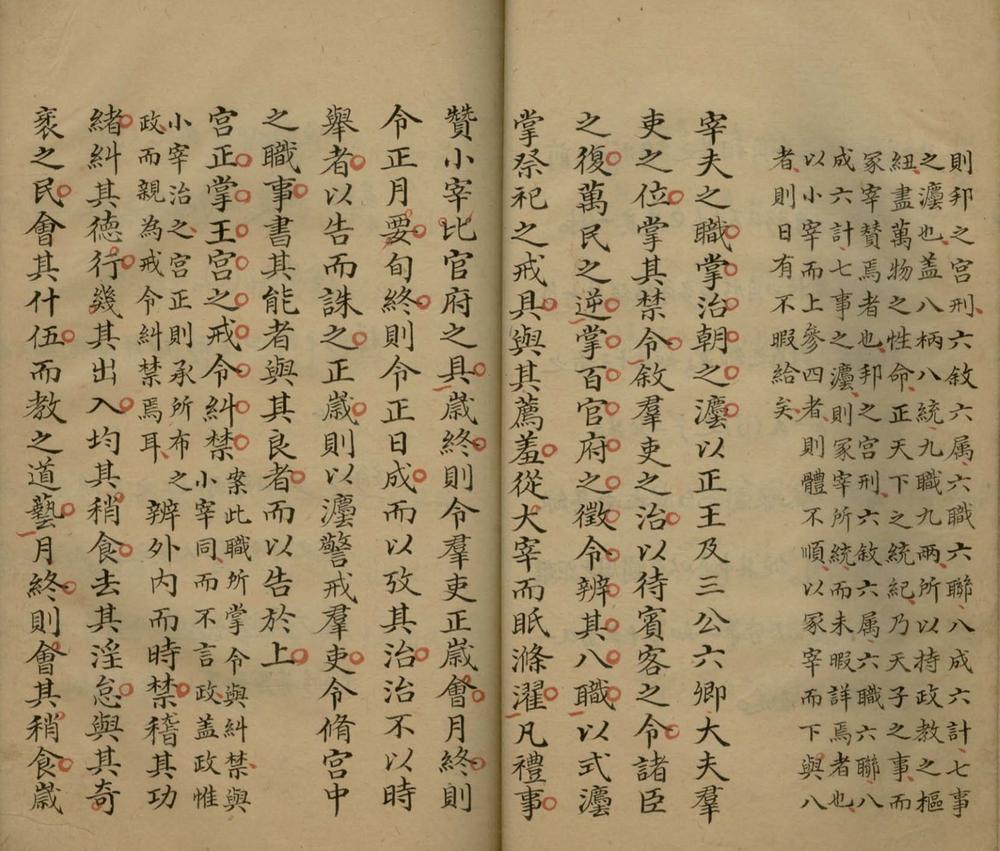 則邦之宫刑六敘六属六職六聯八成六計七事
之灋也盖八柄八統九職九兩所以持政教之樞
紐盡萬物之性命正天下之統紀乃天子之事而
冢宰賛焉者也邦之宫刑六敘六属六職六聯八
成六計七事之灋則冢宰所統而未暇詳焉者也
以小宰而上參四者則體不順以冢宰而下與八
者則日有不暇給矣
宰夫之職掌治朝之灋以正王及三公六卿大夫羣
吏之位掌其禁令敘羣吏之治以待賓客之令諸臣
之復萬民之逆掌百官府之徵令辨其八職以式灋
掌祭祀之戒具與其薦羞從大宰而眂滌濯凡禮事
贊小宰比官府之具歲終則令羣吏正歲會月終則
令正月要旬終則令正日成而以攷其治治不以時
舉者以告而誅之正歲則以灋警戒羣吏令脩宫中
之職事書其能者與其良者而以告於上
宫正掌王宫之戒令糾禁案此職所掌令與糾禁與
小宰同而不言政盖政惟
小宰治之宫正則承所布之
政而親為戒令糾禁焉耳辨外内而時禁稽其功
緒糾其德行幾其出入均其稍食去其淫怠與其奇
衺之民會其什伍而教之道藝月終則會其稍食歲